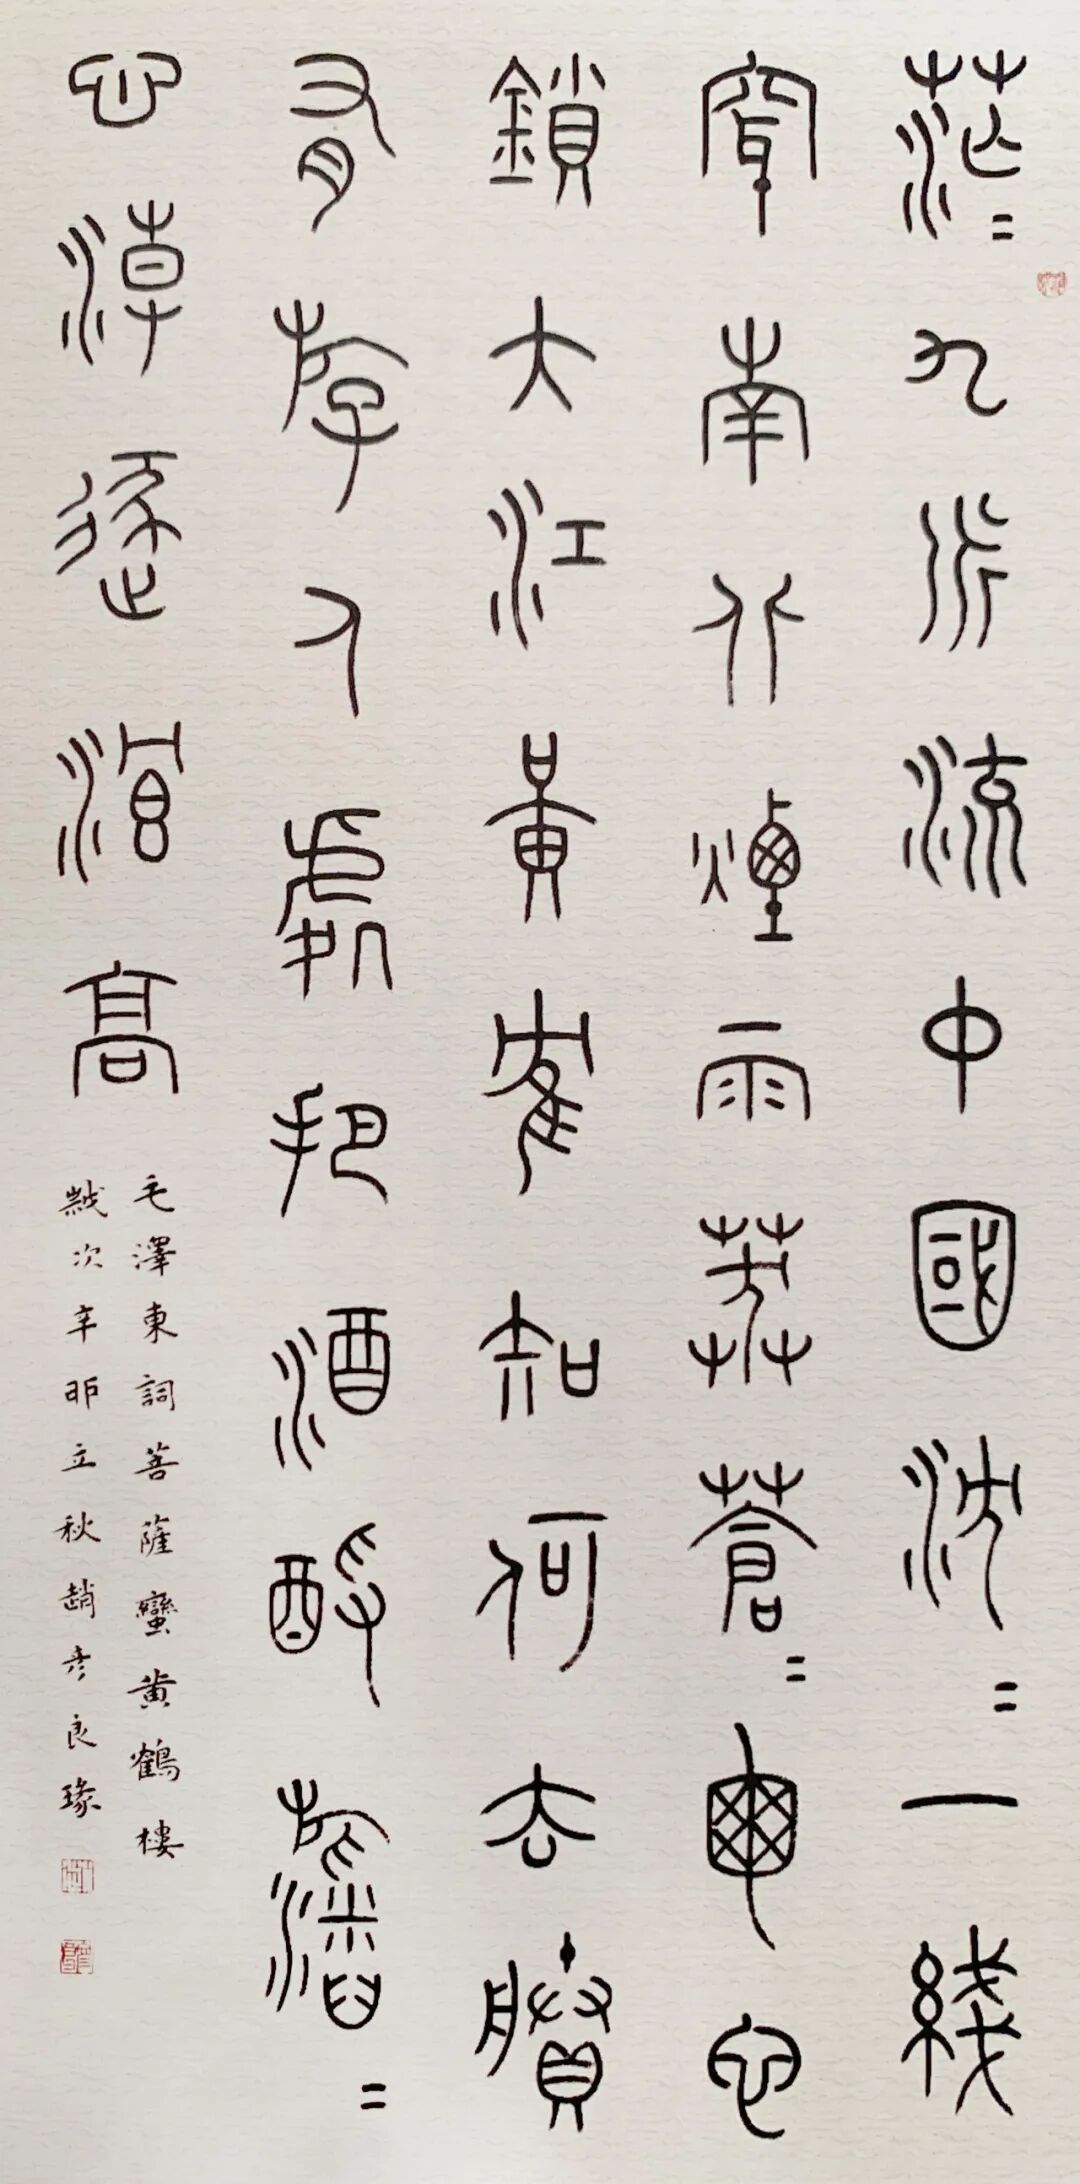 茫〻九派流中國沈〻一綫
穿南北煙雨莽蒼〻龜它
鎖大江黃隺知何去賸
有斿人處把酒酹滔〻
心潮逐浪高
毛澤東詞菩薩蠻黃鶴樓
歲次辛卯立秋趙彥良瑑